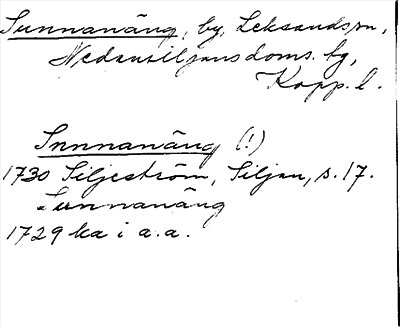 Sunnanäng, by, Leksands sn,
Nedansiljans doms. hg,
Kopp. l.
Snnnanäng (!)
1730 Siljeström, Siljan, s. 17.
Sunnanäng
1729 ka i a.a.